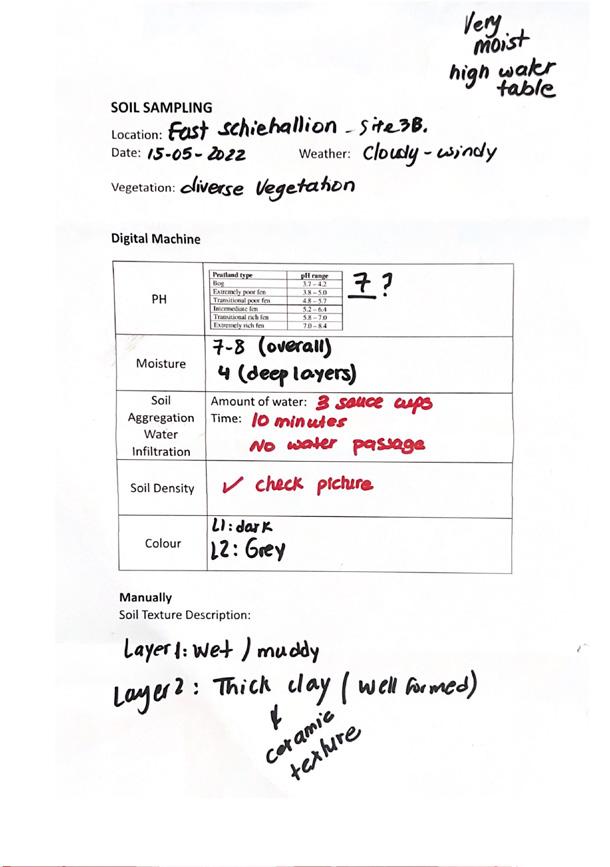 Very
moist
high water
table
SOIL SAMPLING
Location: East Schiehallion - Site 3B.
Date: 15-05-2022 Weather: Cloudy - windy
Vegetation: diverse Vegetation
Digital Machine
PH
Peatland type pH range
Bog 3.7 – 4.2
Extremely poor fen 3.8 – 5.0
Transitional poor fen 4.8 – 5.7
Intermediate fen 5.2 – 6.4
Transitional rich fen 5.8 – 7.0
Extremely rich fen 7.0 – 8.4
7 ?
Moisture
7-8 (overall)
4 (deep layers)
Soil
Aggregation
Water
Infiltration
Amount of water: 3 sauce cups
Time: 10 minutes
No water passage
Soil Density
✓ check picture
Colour
L1: dark
L2: Grey
Manually
Soil Texture Description:
Layer 1: Wet / muddy
Layer 2: Thick clay (well formed)
ceramic
texture